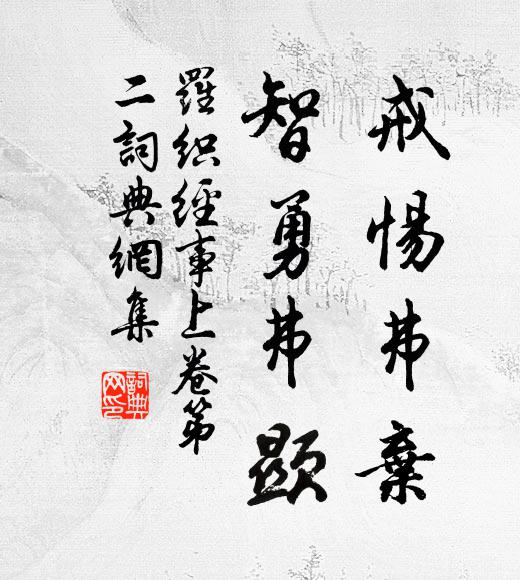 戒惕弗棄
智勇弗顯
羅織經事上卷第
二詞典網集
詞典网印